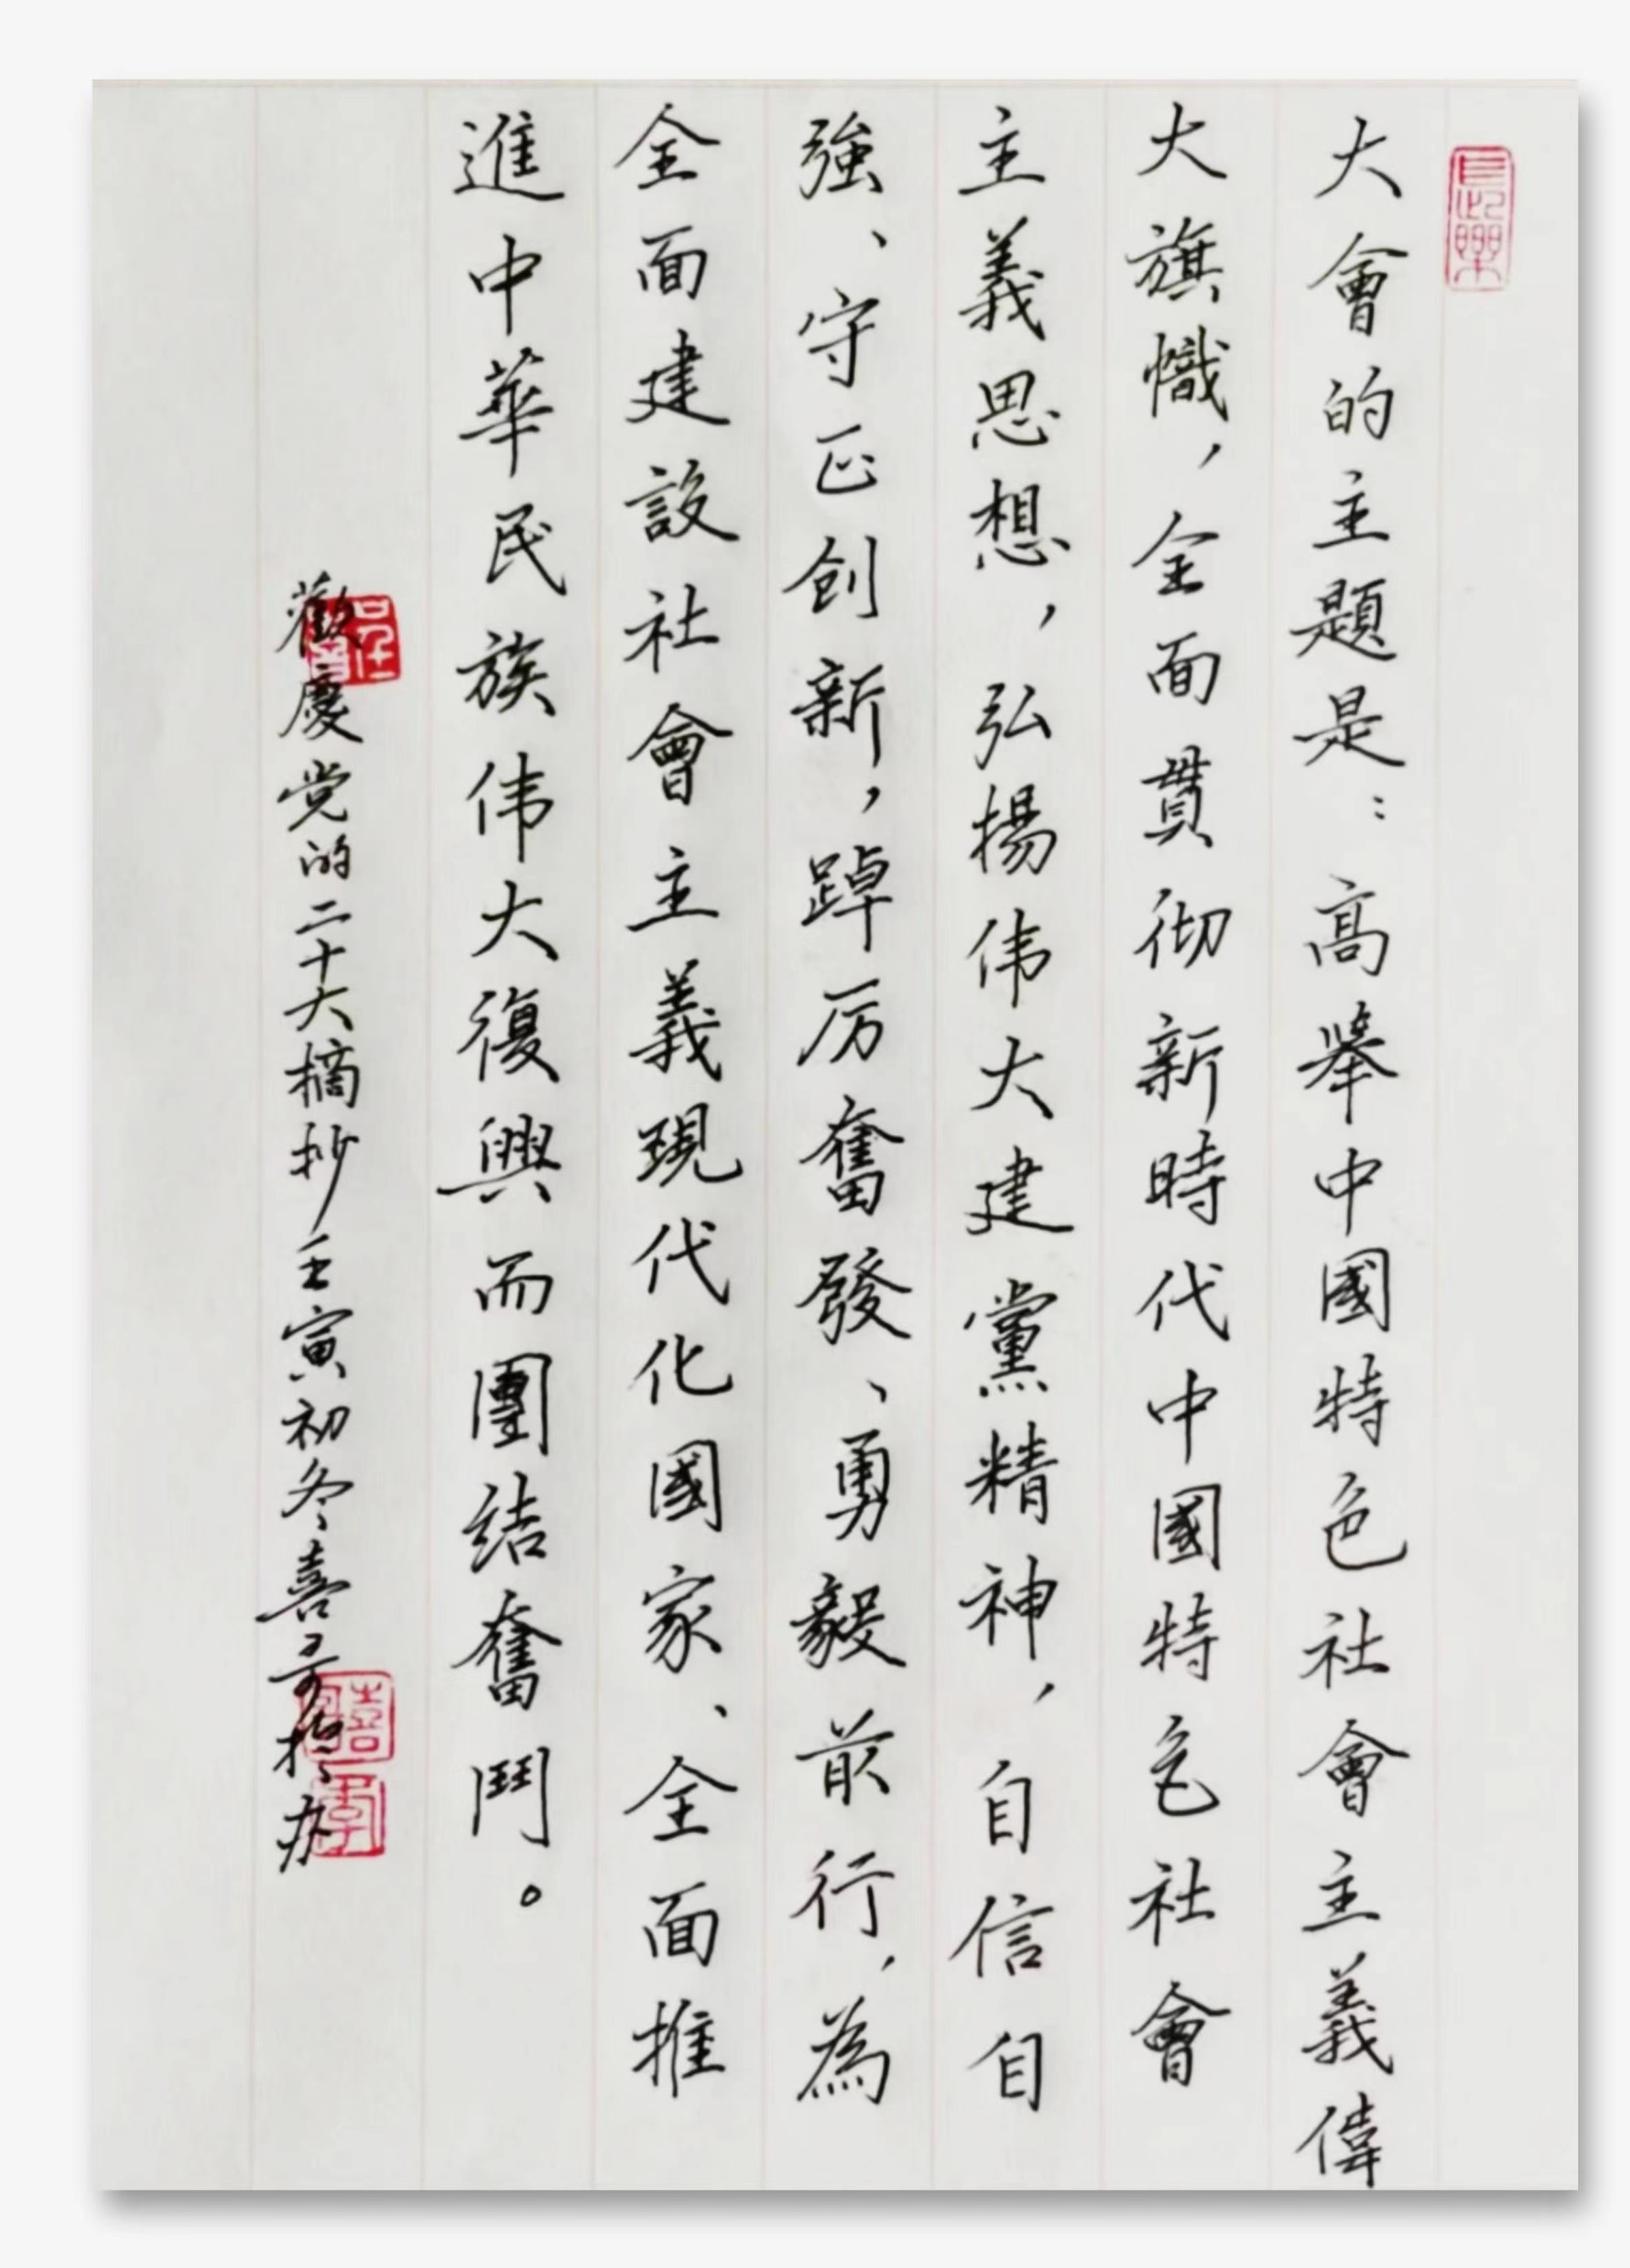 大會的主題是：高舉中國特色社會主義偉
大旗幟，全面貫彻新時代中國特色社會
主義思想，弘揚伟大建黨精神，自信自
強、守正创新，踔厉奮發、勇毅前行，為
全面建設社會主義現代化國家、全面推
進中華民族伟大復興而團結奮鬥。
歡慶党的二十大摘抄壬寅初冬喜